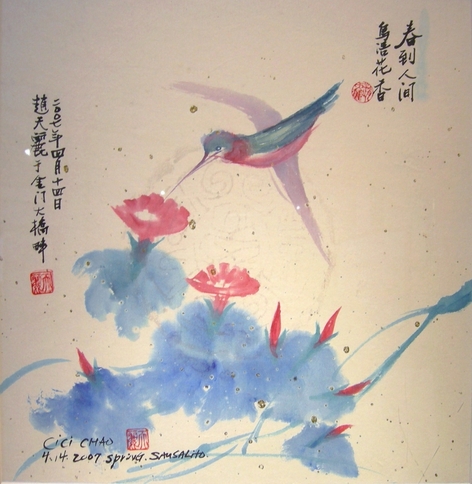 春到人间
鳥语花香
二〇〇七年四月十四日
趙天麗于金门大橋畔
CiCi CHAO
4.14.2007 spring. SAUSALITO.